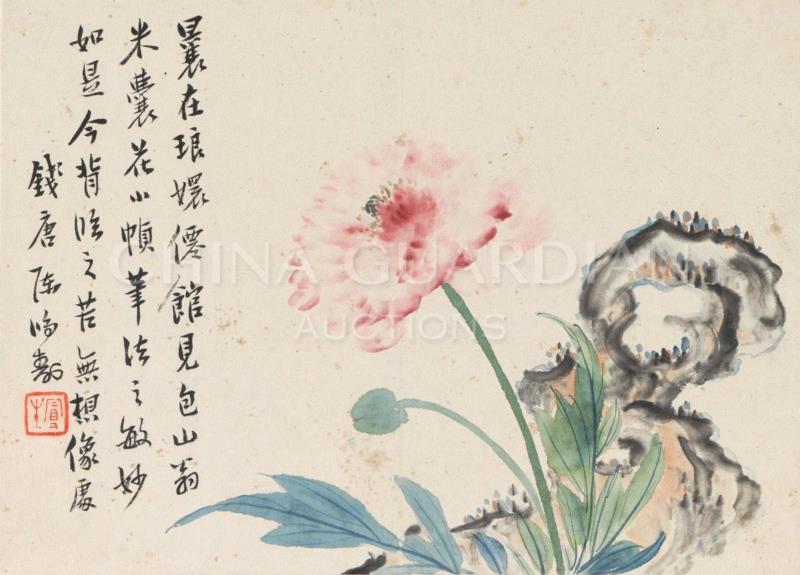 曩在琅嬛僊館見包山翁
米囊花小幀筆法之敏妙
如是今背臨之苦無想像處
錢唐陳鴻壽
CHINA GUARDIAN
AUCTIONS